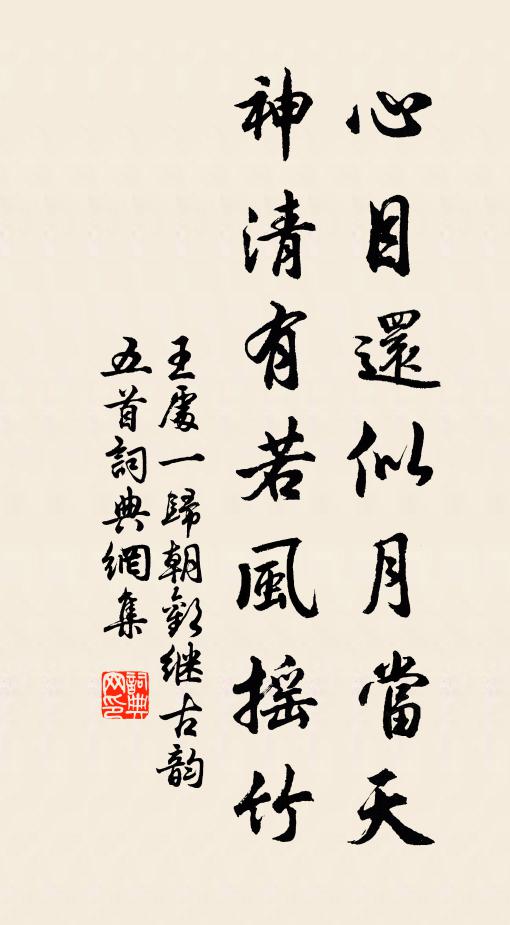 心目還似月當天
神清有若風摇竹
王處一歸朝歡继古韵
五首詞典網集
詞典网印